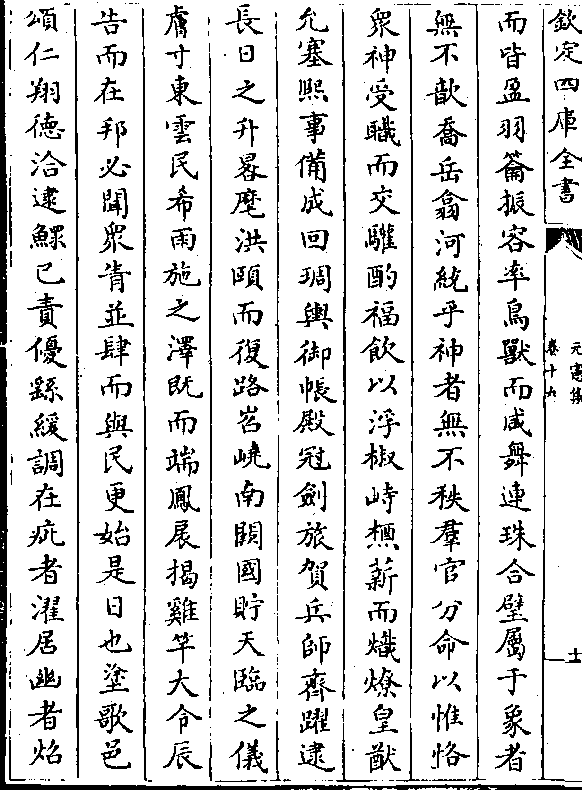 欽定四庫全書
元憲集
卷十九
十一
而皆盈羽籥振容率鳥獸而咸舞連珠合璧屬于象者
無不歆喬岳翕河統乎神者無不秩羣官分命以惟恪
衆神受職而交驩酌福飲以浮椒峙槱薪而熾燎皇猷
允塞熙事備成回琱輿御帳殿冠劍旅賀兵師齊躍逮
長日之升晷麾洪頤而復路岧嶢南闕國貯天臨之儀
膚寸東雲民希雨施之澤既而端鳳扆揭雞竿大令辰
告而在邦必聞衆眚並肆而與民更始是日也塗歌邑
頌仁翔德洽逮鰥已責優繇緩調在疪者濯居幽者炤